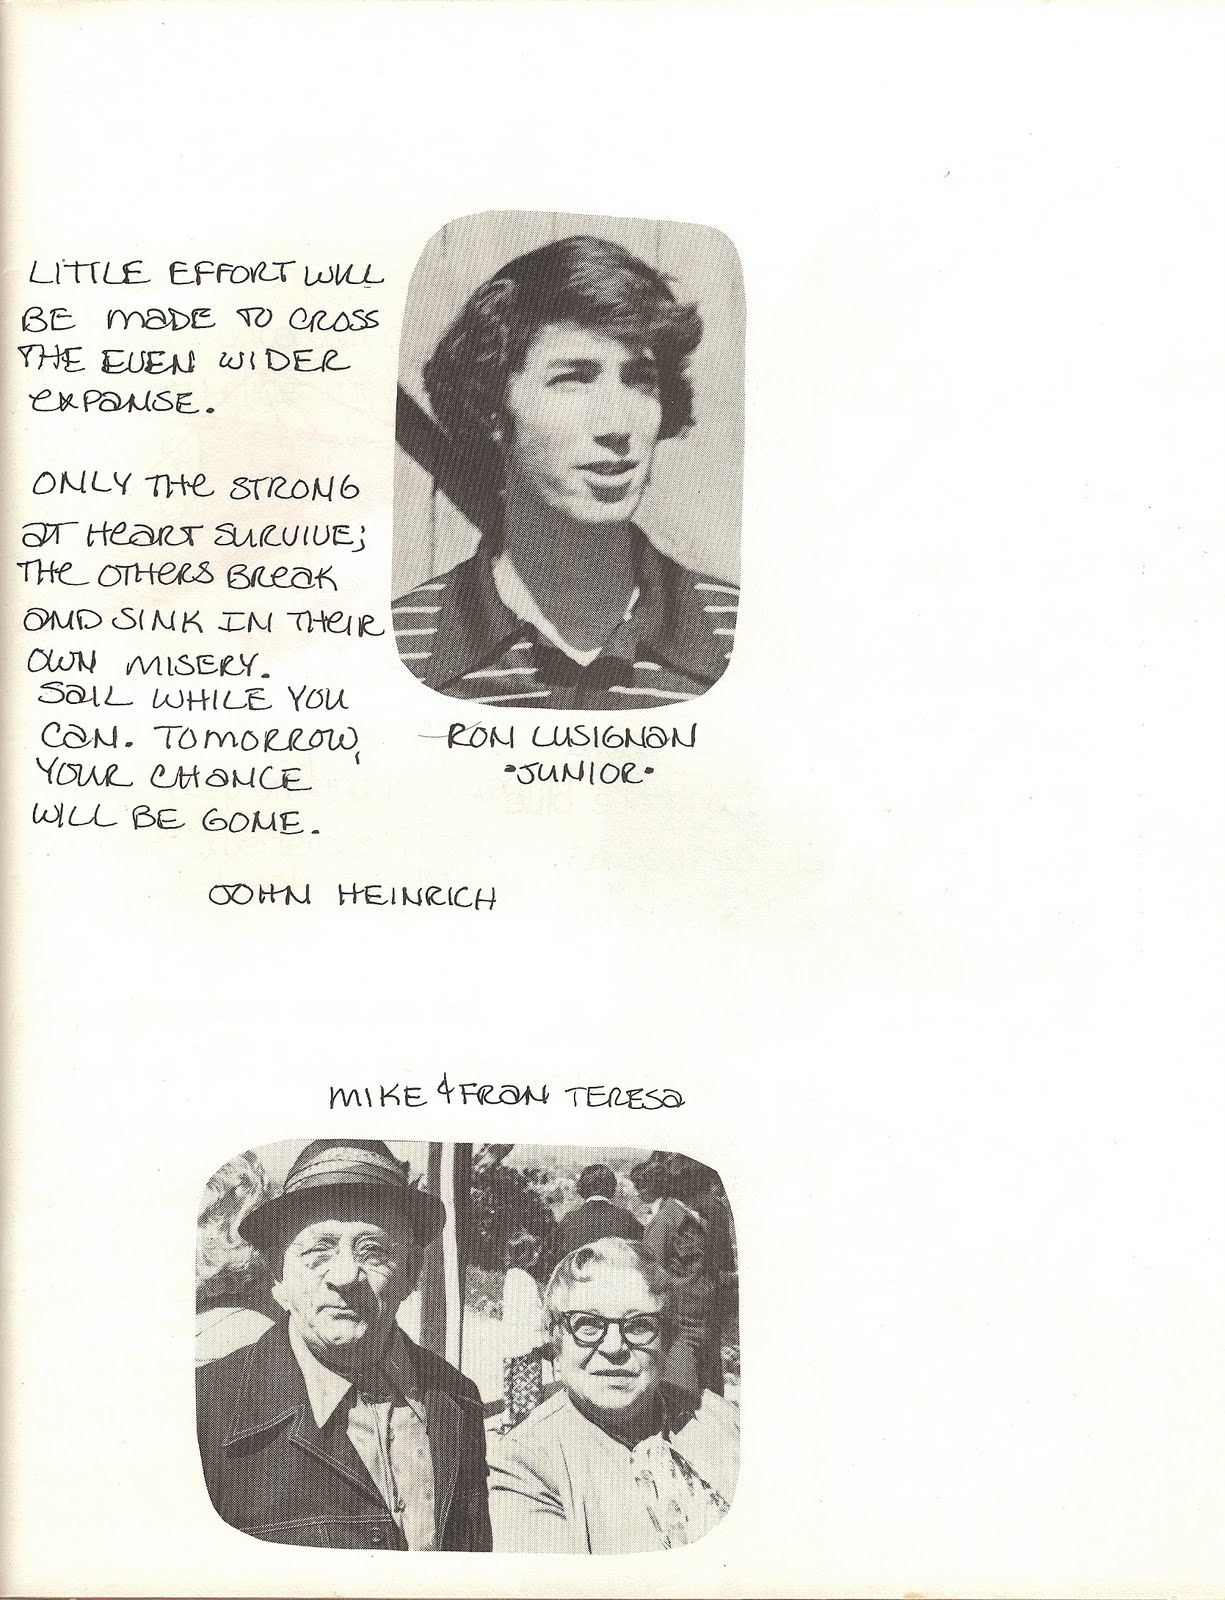 LITTLE EFFORT WILL
BE MADE TO CROSS
THE EVEN WIDER
EXPANSE.
ONLY THE STRONG
AT HEART SURVIVE;
THE OTHERS BREAK
AND SINK IN THEIR
OWN MISERY.
SAIL WHILE YOU
CAN. TOMORROW,
YOUR CHANCE
WILL BE GONE.
JOHN HEINRICH
RON LUSIGNAN
•JUNIOR•
MIKE & FRAN TERESA